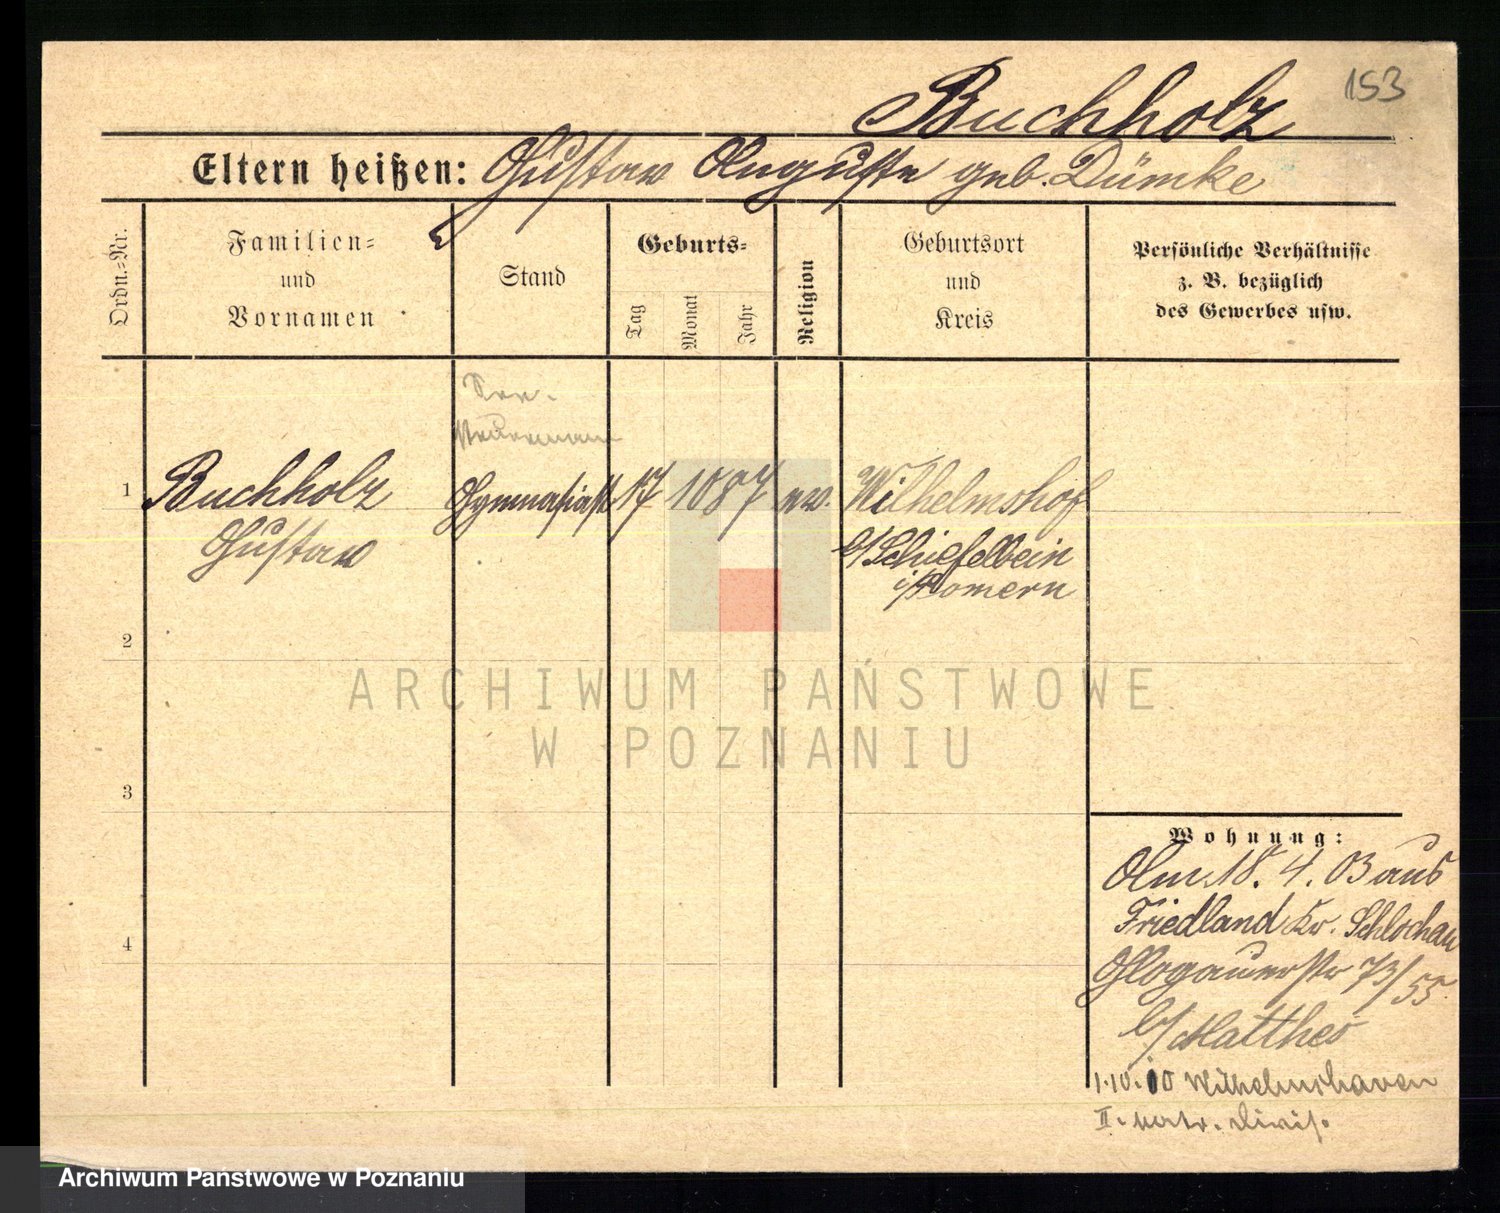 153
Buchholz
Eltern heißen: Gustav Auguste geb. Dümke
Ordn.=Nr.
Familien=
und
Vornamen
Stand
Geburts=
Tag
Monat
Jahr
Religion
Geburtsort
und
Kreis
Persönliche Verhältnisse
z. B. bezüglich
des Gewerbes usw.
See-
steuermann
1 Buchholz Gymnasiast 17/ 10 87 ev. Wilhelmshof
Gustav b/Schiefelbein
i/Pomern
2
ARCHIWUM PAŃSTWOWE
W POZNANIU
3
Wohnung:
Am 18. 4. 03 aus
Friedland Kr. Schlochau
4
Glogauerstr 73/55
b/Matthes
1.10.10 Wilhelmshaven
II. Matr. Divis.
Archiwum Państwowe w Poznaniu